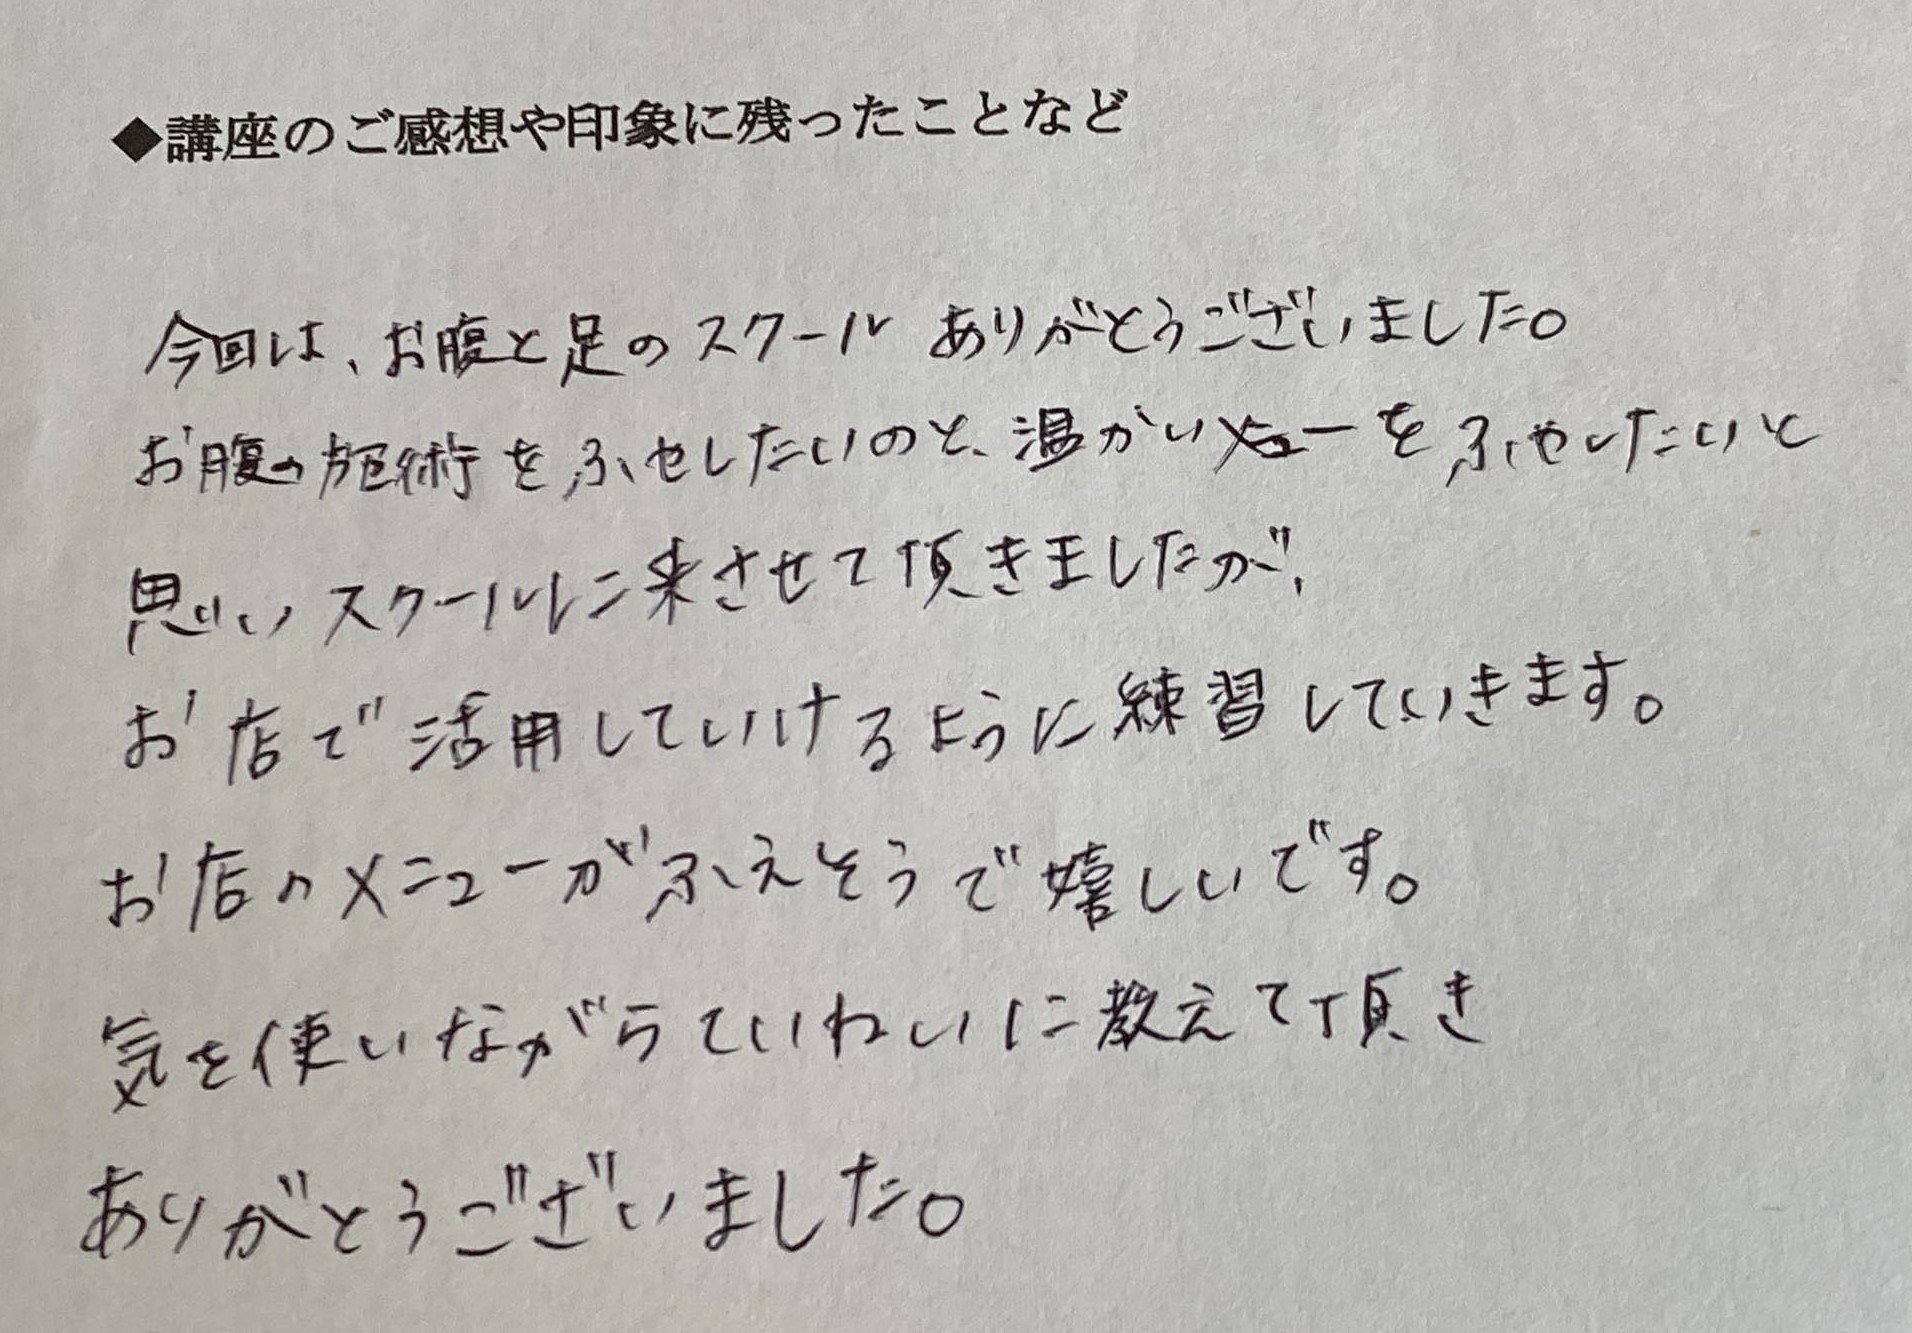 ◆講座のご感想や印象に残ったことなど
今回は、お腹と足のスクール ありがとうございました。
お腹の施術をふやしたいのと、温かいメニューをふやしたいと
思いスクールに来させて頂きましたが、
お店で活用していけるように練習していきます。
お店のメニューがふえそうで嬉しいです。
気を使いながらていねいに教えて頂き
ありがとうございました。